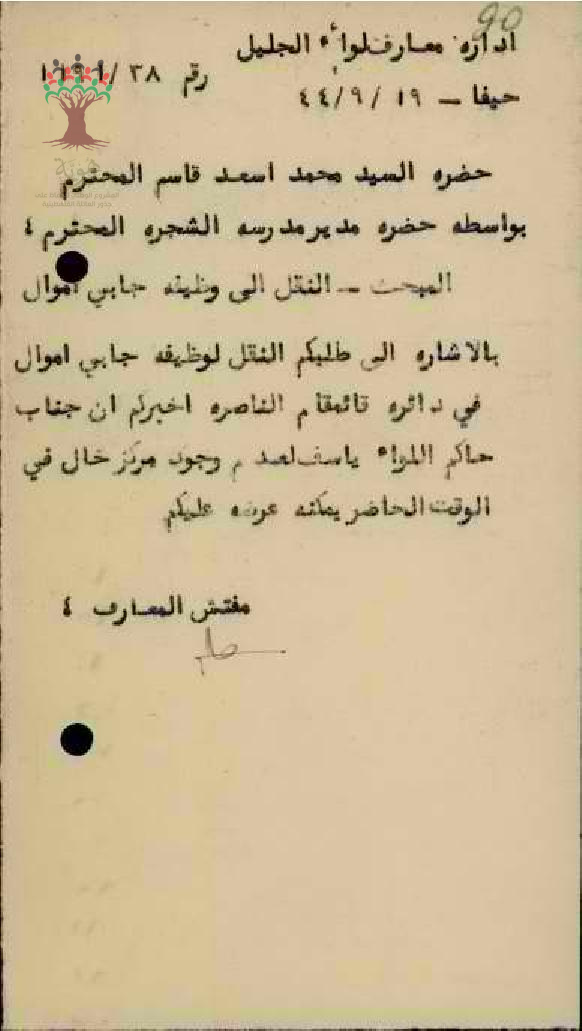 90
ادارة معارف لواء الجليل
حيفا — ١٩ /٩/ ٤٤
رقم ٣٨/
هوية
حضره السيد محمد اسعد قاسم المحترم
بواسطه حضره مدير مدرسه الشجره المحترم ٤
المبحث — النقل الى وظيفه جابي اموال
بالاشاره الى طلبكم النقل لوظيفه جابي اموال
في دائره قائمقام الناصره اخبركم ان جناب
حاكم اللواء ياسف لعدم وجود مركز خال في
الوقت الحاضر يمكنه عرضه عليكم
مفتش المعارف ٤